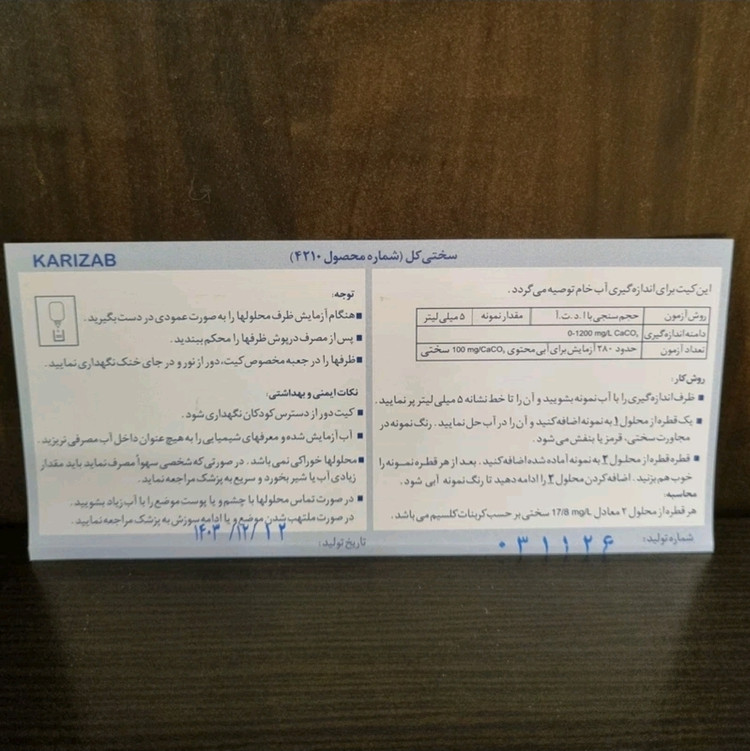 سختی کل (شماره محصول ۴۲۱۰)
KARIZAB
این کیت برای اندازه‌گیری آب خام توصیه می‌گردد.
روش آزمون حجم سنجی با ا. د. ت. آ مقدار نمونه ۵ میلی لیتر
دامنه اندازه‌گیری 0-1200 mg/L CaCO₃
تعداد آزمون حدود ۲۸۰ آزمایش برای آبی محتوی 100 mg/CaCO₃ سختی
روش کار:
■ ظرف اندازه‌گیری را با آب نمونه بشویید و آن را تا خط نشانه ۵ میلی لیتر پر نمایید.
■ یک قطره از محلول ۱ به نمونه اضافه کنید و آن را در آب حل نمایید. رنگ نمونه در
مجاورت سختی، قرمز یا بنفش می‌شود.
■ قطره قطره از محلول ۲ به نمونه آماده شده اضافه کنید. بعد از هر قطره نمونه را
خوب هم بزنید. اضافه کردن محلول ۲ را ادامه دهید تا رنگ نمونه آبی شود.
محاسبه:
هر قطره از محلول ۲ معادل 17/8 mg/L سختی بر حسب کربنات کلسیم می‌باشد.
شماره تولید: ۰۳۱۱۲۶
توجه:
■ هنگام آزمایش ظرف محلولها را به صورت عمودی در دست بگیرید.
■ پس از مصرف درپوش ظرفها را محکم ببندید.
■ ظرفها را در جعبه مخصوص کیت، دور از نور و در جای خنک نگهداری نمایید.
نکات ایمنی و بهداشتی:
■ کیت دور از دسترس کودکان نگهداری شود.
■ آب آزمایش شده و معرفهای شیمیایی را به هیچ عنوان داخل آب مصرفی نریزید.
■ محلولها خوراکی نمی باشد. در صورتی که شخصی سهواً مصرف نماید باید مقدار
زیادی آب یا شیر بخورد و سریع به پزشک مراجعه نماید.
■ در صورت تماس محلولها با چشم و یا پوست موضع را با آب زیاد بشویید.
در صورت ملتهب شدن موضع و یا ادامه سوزش به پزشک مراجعه نمایید.
تاریخ تولید: ۱۴۰۳/۱۲/۱۲